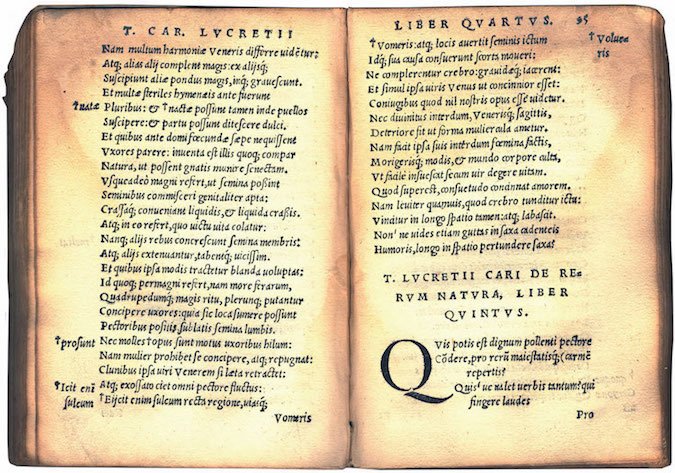 T. CAR. LVCRETII
Nam multum harmoniæ Veneris differre uidẽtur:
Atq; alias alij complent magis: ex alijsq;
Suscipiunt aliæ pondus magis, inq; grauescunt.
Et multæ steriles hymenæis ante fuerunt
†natæ Pluribus: & †nactæ possunt tamen inde puellos
Suscipere: & partu possunt ditescere dulci.
Et quibus ante domi fœcundæ sæpe nequissent
Vxores parere: inuenta est illis quoq; compar
Natura, ut possent gnatis munire senectam.
Vsqueadeò magni refert, ut semina possint
Seminibus commisceri genitaliter apta:
Crassáq; conueniant liquidis, & liquida crassis.
Atq; in eo refert, quo uictu uita colatur:
Nanq; alijs rebus concrescunt semina membris:
Atq; alijs extenuantur, tabenq; uicissim.
Et quibus ipsa modis tractetur blanda uoluptas:
Id quoq; permagni refert, nam more ferarum,
Quadrupedumq; magis ritu, plerunq; putantur
Concipere uxores: quia sic loca sumere possunt
Pectoribus positis, sublatis semina lumbis.
†prosunt Nec molles †opus sunt motus uxoribus hilum:
Nam mulier prohibet se concipere, atq; repugnat:
Clunibus ipsa uiri Venerem si læta retractet:
†Icit enĩ Atq; exossato ciet omni pectore fluctus:
sulcum †Eijcit enim sulcum recta regione, uiaq;
Vomeris
LIBER QVARTVS. 95
†Vomeris: atq; locis auertit seminis ictum †Volucæ
Idq; sua causa consuerunt scorta moueri: ris
Ne complerentur crebro: grauidæq; iacerent:
Et simul ipsa uiris Venus ut concinnior esset:
Coniugibus quod nil nostris opus esse uidetur.
Nec diuinitus interdum, Venerisq; sagittis,
Deteriore fit ut forma muliercula ametur.
Nam facit ipsa suis interdum fœmina factis,
Morigerisq; modis, & mundo corpore culta,
Vt facilè insuescat secum uir degere uitam.
Quod superest, consuetudo concinnat amorem.
Nam leuiter quamuis, quod crebro tunditur ictu:
Vincitur in longo spatio tamen: atq; labascit.
Non'ne uides etiam guttas in saxa cadenteis
Humoris, longo in spatio pertundere saxa?
T. LVCRETII CARI DE RE=
RVM NATVRA, LIBER
QVINTVS.
Qvis potis est dignum pollenti pectore
Cõdere, pro rerũ maiestatisq; (carmẽ
repertis?
Quis'ue ualet uerbis tantum? qui
fingere laudes
Pro